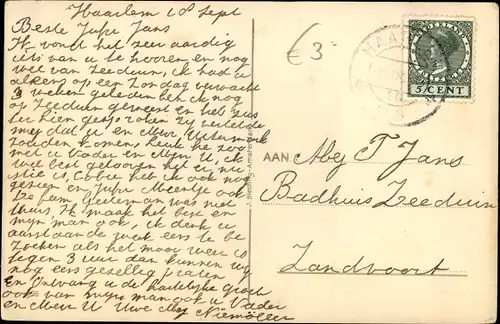 Haarlem 18 Sept
Beste Jufr Jans
Ik vondt het zeer aardig
iets van u te hooren en nog
wel van Zeeduin, ik had u
alkens op een Zondag verwacht
3 weken geleden ben ik nog
op Zeeduin geweest en het
hier zij vertelde
mij dat u en Mevr
zouden komen, leuk he zoo
met u Vader en Mevr U, ik
wel best gelooven het u nu
stie is, Cobie heb ik ook nog
gezien en Jufr Meertje ook
De fam was niet
thuis. Ik maak het best en
mijn man ook, ik denk u
aanstaande week eens te be
zoeken als het mooi weer is
tegen 3 uur dan kunnen wij
nog eens gezellig praten
En Ontvang u de hartelijke groeten
ook van mijn man ook u Vader
en Mevr U Uwe Mej Niemöller
€ 3-
HAARLEM
5 CENT
AAN Mej T Jans
Badhuis Zeeduin
Zandvoort